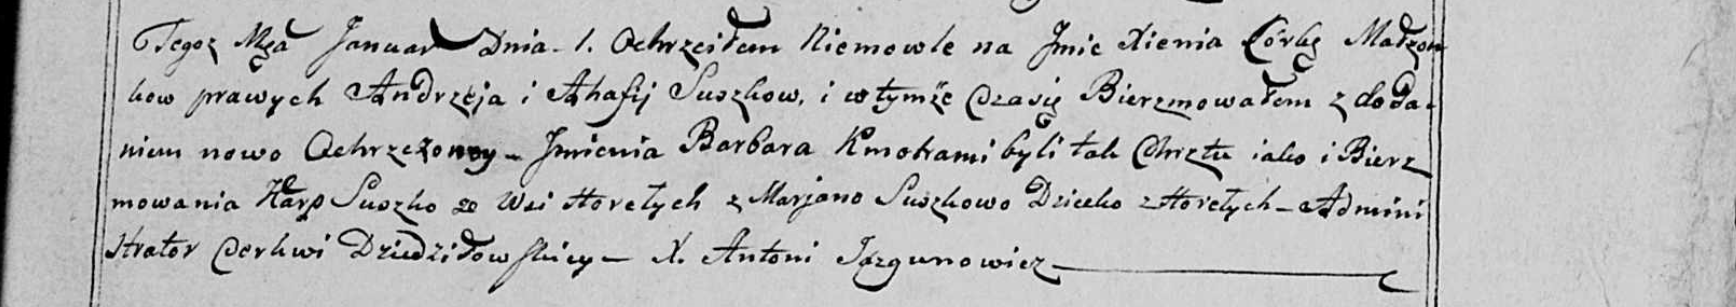 Tegoz Mca Januar Dnia 1. Ochrzciłem Niemowle na Jmie Xienia Córkę Małżon
kow prawych Andrzeja i Ahafij Suszkow, i w tymże Czasie Bierzmowałem z doda-
niem nowo Ochrzczoney - Jmienia Barbara Kmotrami byli tak Chrztu iako i Bierz
mowania Karp Suszko ze Wsi Horełych z Marjano Suszkowo Dziecko z Horełych - Admini
strator Cerkwi Dziedziłowskiey - X. Antoni Jazgunowicz